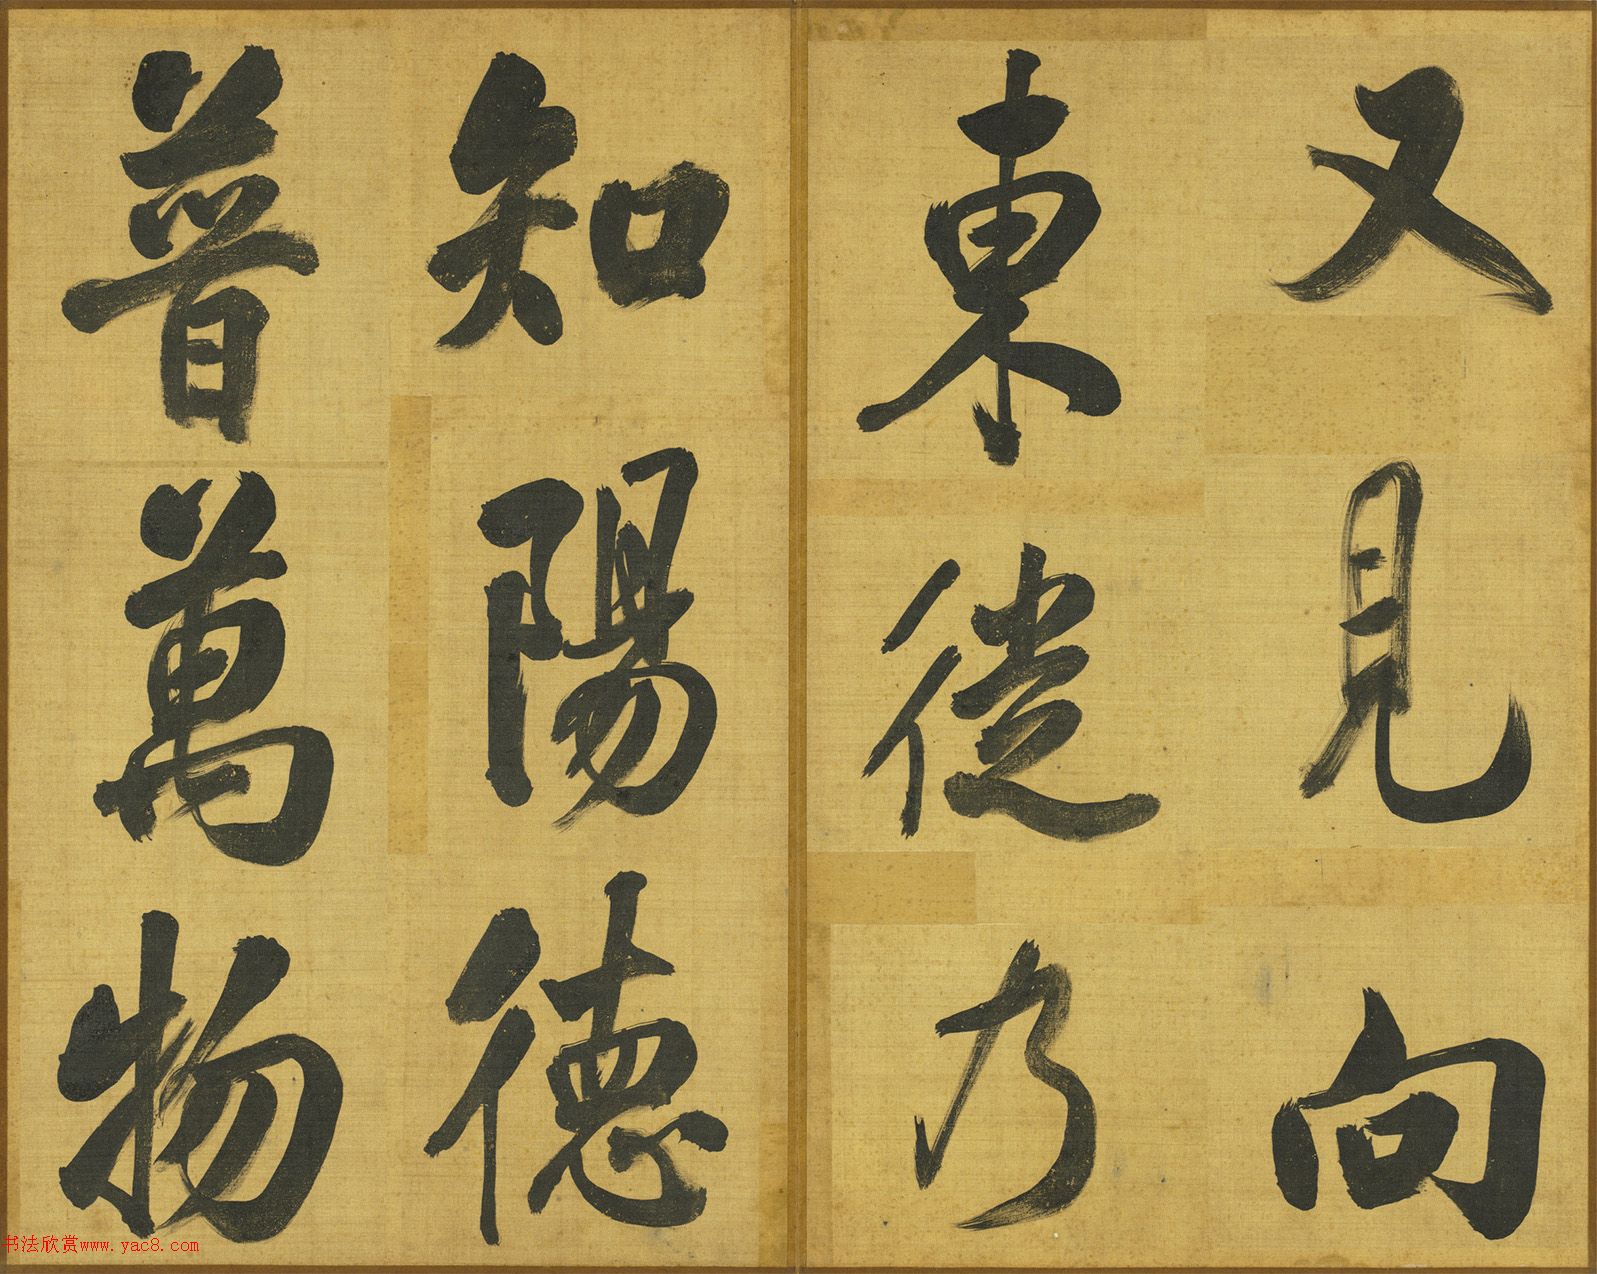 又見向
東從乃
知陽德
普萬物
书法欣赏www.yac8.com